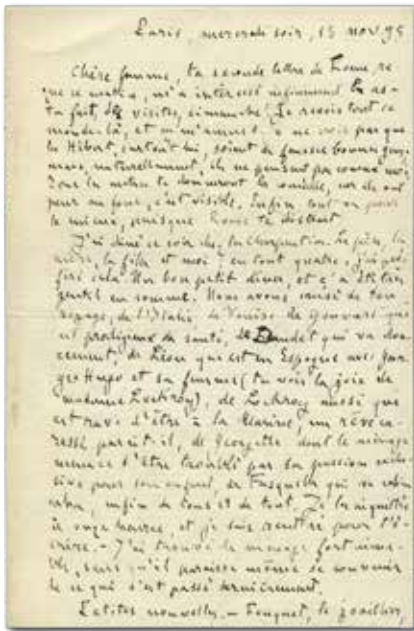 Paris, mercredi soir, 13 nov 95
Chère femme, ta seconde lettre de Rome, re-
çue ce matin, m'a intéressé infiniment. En as-
tu fait, des visites, dimanche! Je revois tout ce
monde-là, et m'amuse. Je ne crois pas que
les Hébert, surtout lui, soient de
mais, naturellement, ils ne pensent pas comme moi.
Tous les notres te donneront la comédie, car ils ont
peur au fond, c'est visible. Enfin tout va pour
le mieux, puisque Rome te distrait.
J'ai dîné ce soir chez les Charpentier. Le père, la
mère, la fille et moi: en tout quatre, j'ai pré-
féré cela. Un bon petit dîner, et ç'a été très
gentil en somme. Nous avons causé de ton
voyage, de l'Italie, de Venise, de Goncourt qui
est prodigieux de santé, de Daudet qui va dou-
cement, de Léon qui est en Espagne avec Geor-
ges Hugo et sa femme (tu vois la joie de
madame Lockroy), de Lockroy aussi qui
est ravi d'être à la Marine, un rêve ca-
ressé paraît-il, de Georgette dont le ménage
menace d'être troublé par sa passion exclu-
sive pour son enfant, de Fasquelle qui va
enfin de tous et de tout. Je les ai quittés
à onze heures, et je suis rentré pour t'é-
crire. – J'ai trouvé le ménage fort aima-
ble, sans qu'il paraisse même se souvenir
de ce qui s'est passé dernièrement.
Petites nouvelles. – Fouquet, le joaillier,